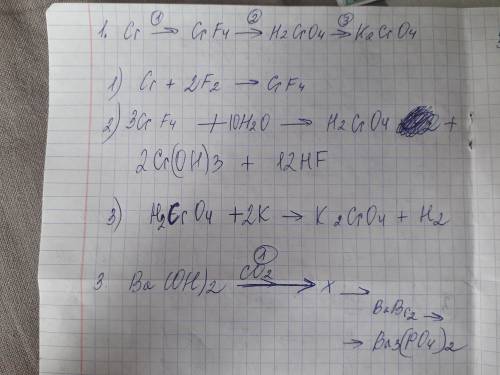 1. Cr ① → CrF4 ② → H2CrO4 ③ → K2CrO4
1) Cr + 2F2 → CrF4
2) 3CrF4 + 10H2O → H2CrO4 +
2Cr(OH)3 + 12HF
3) H2CrO4 + 2K → K2CrO4 + H2
3 Ba(OH)2 CO2 ① → X →
BaBr2 →
→ Ba3(PO4)2